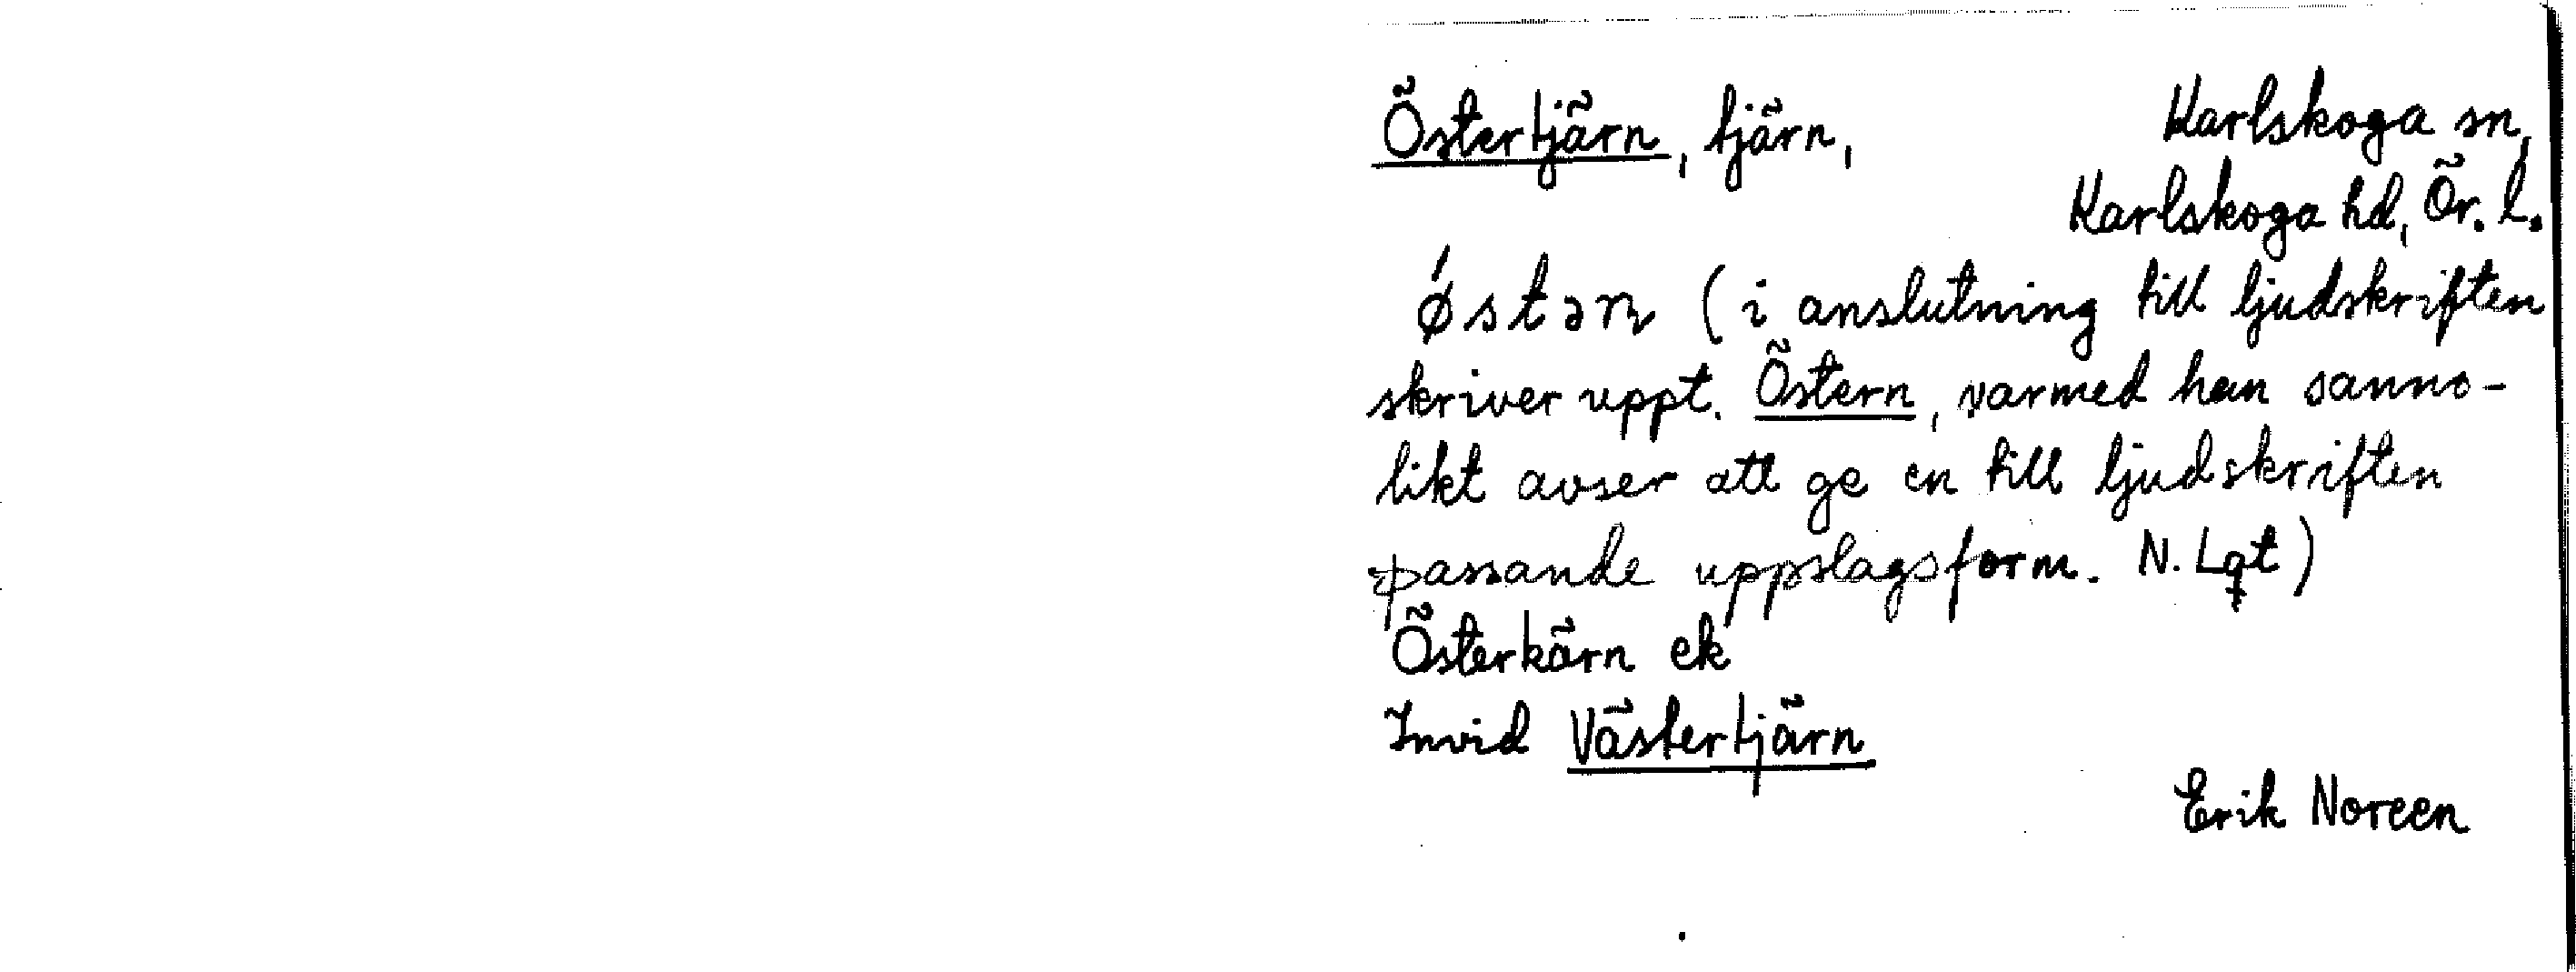 Östertjärn, tjärn, Karlskoga sn,
Karlskoga hd, Ör. l.
ǿstərn (i anslutning till ljudskriften
skriver uppt. Östern, varmed han sanno-
likt avser att ge en till ljudskriften
passande uppslagsform. N. Lqt)
Österkärn ek
Invid Västertjärn
Erik Noreen